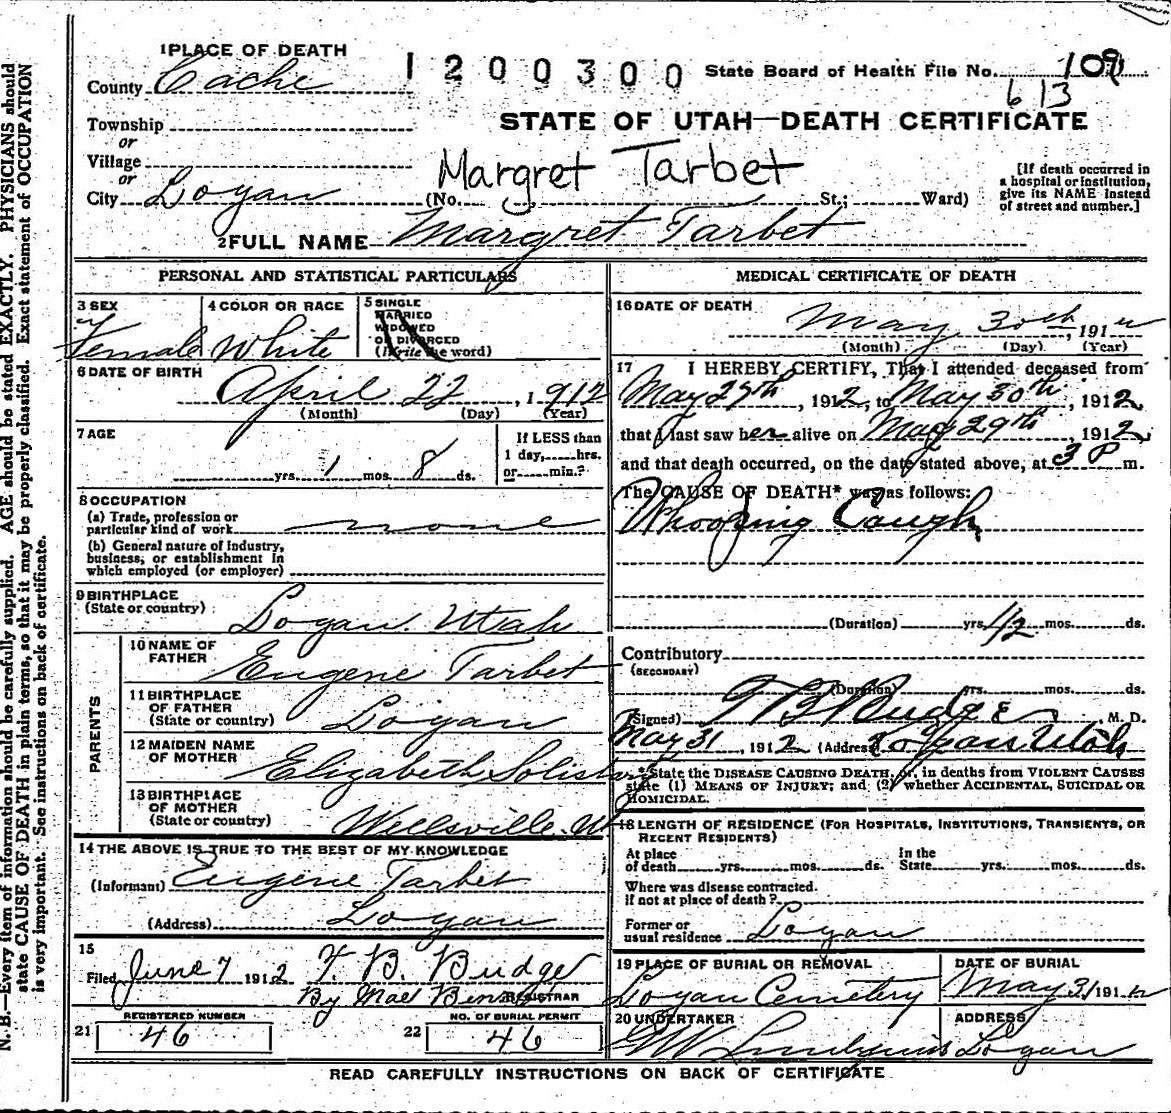 N. B.—Every item of information should be carefully supplied. AGE should be stated EXACTLY. PHYSICIANS should
state CAUSE OF DEATH in plain terms, so that it may be properly classified. Exact statement of OCCUPATION
is very important. See instructions on back of certificate.
1 PLACE OF DEATH
1200300
State Board of Health File No. 109
613
County Cache
STATE OF UTAH—DEATH CERTIFICATE
Township
or
Village
or
Margret Tarbet
City Logan (No. St.; Ward)
[If death occurred in
a hospital or institution,
give its NAME instead
of street and number.]
2 FULL NAME Margret Tarbet
PERSONAL AND STATISTICAL PARTICULARS
3 SEX
Female
4 COLOR OR RACE
White
5 SINGLE
MARRIED
WIDOWED
OR DIVORCED
(Write the word)
6 DATE OF BIRTH
April 22, 1912
(Month) (Day) (Year)
7 AGE
yrs. 1 mos. 8 ds.
If LESS than
1 day, hrs.
or min.?
8 OCCUPATION
(a) Trade, profession or
particular kind of work none
(b) General nature of industry,
business, or establishment in
which employed (or employer)
9 BIRTHPLACE
(State or country) Logan. Utah
PARENTS
10 NAME OF
FATHER Eugene Tarbet
11 BIRTHPLACE
OF FATHER
(State or country) Logan
12 MAIDEN NAME
OF MOTHER Elizabeth
13 BIRTHPLACE
OF MOTHER
(State or country) Wellsville. Ut
14 THE ABOVE IS TRUE TO THE BEST OF MY KNOWLEDGE
(Informant) Eugene Tarbet
(Address) Logan
15
Filed June 7 1912 T. B. Budge
By Mae
REGISTRAR
REGISTERED NUMBER
21 46
NO. OF BURIAL PERMIT
22 46
MEDICAL CERTIFICATE OF DEATH
16 DATE OF DEATH
May 30th, 191
(Month) (Day) (Year)
17 I HEREBY CERTIFY, That I attended deceased from
May 29th, 1912, to May 30th, 1912,
that I last saw her alive on May 29th 1912,
and that death occurred, on the date stated above, at 3 P m.
The CAUSE OF DEATH* was as follows:
Whooping Cough
(Duration) yrs. 1/2 mos. ds.
Contributory
(SECONDARY)
(Duration) yrs. mos. ds.
(Signed) T B Budge, M. D.
May 31, 1912 (Address) Logan Utah
*State the DISEASE CAUSING DEATH, or, in deaths from VIOLENT CAUSES
state (1) MEANS OF INJURY; and (2) whether ACCIDENTAL, SUICIDAL OR
HOMICIDAL.
18 LENGTH OF RESIDENCE (FOR HOSPITALS, INSTITUTIONS, TRANSIENTS, OR
RECENT RESIDENTS)
At place
of death yrs. mos. ds.
In the
State yrs. mos. ds.
Where was disease contracted.
if not at place of death?
Former or
usual residence Logan
19 PLACE OF BURIAL OR REMOVAL
Logan Cemetery
DATE OF BURIAL
May 31 191
20 UNDERTAKER
ADDRESS
Logan
READ CAREFULLY INSTRUCTIONS ON BACK OF CERTIFICATE